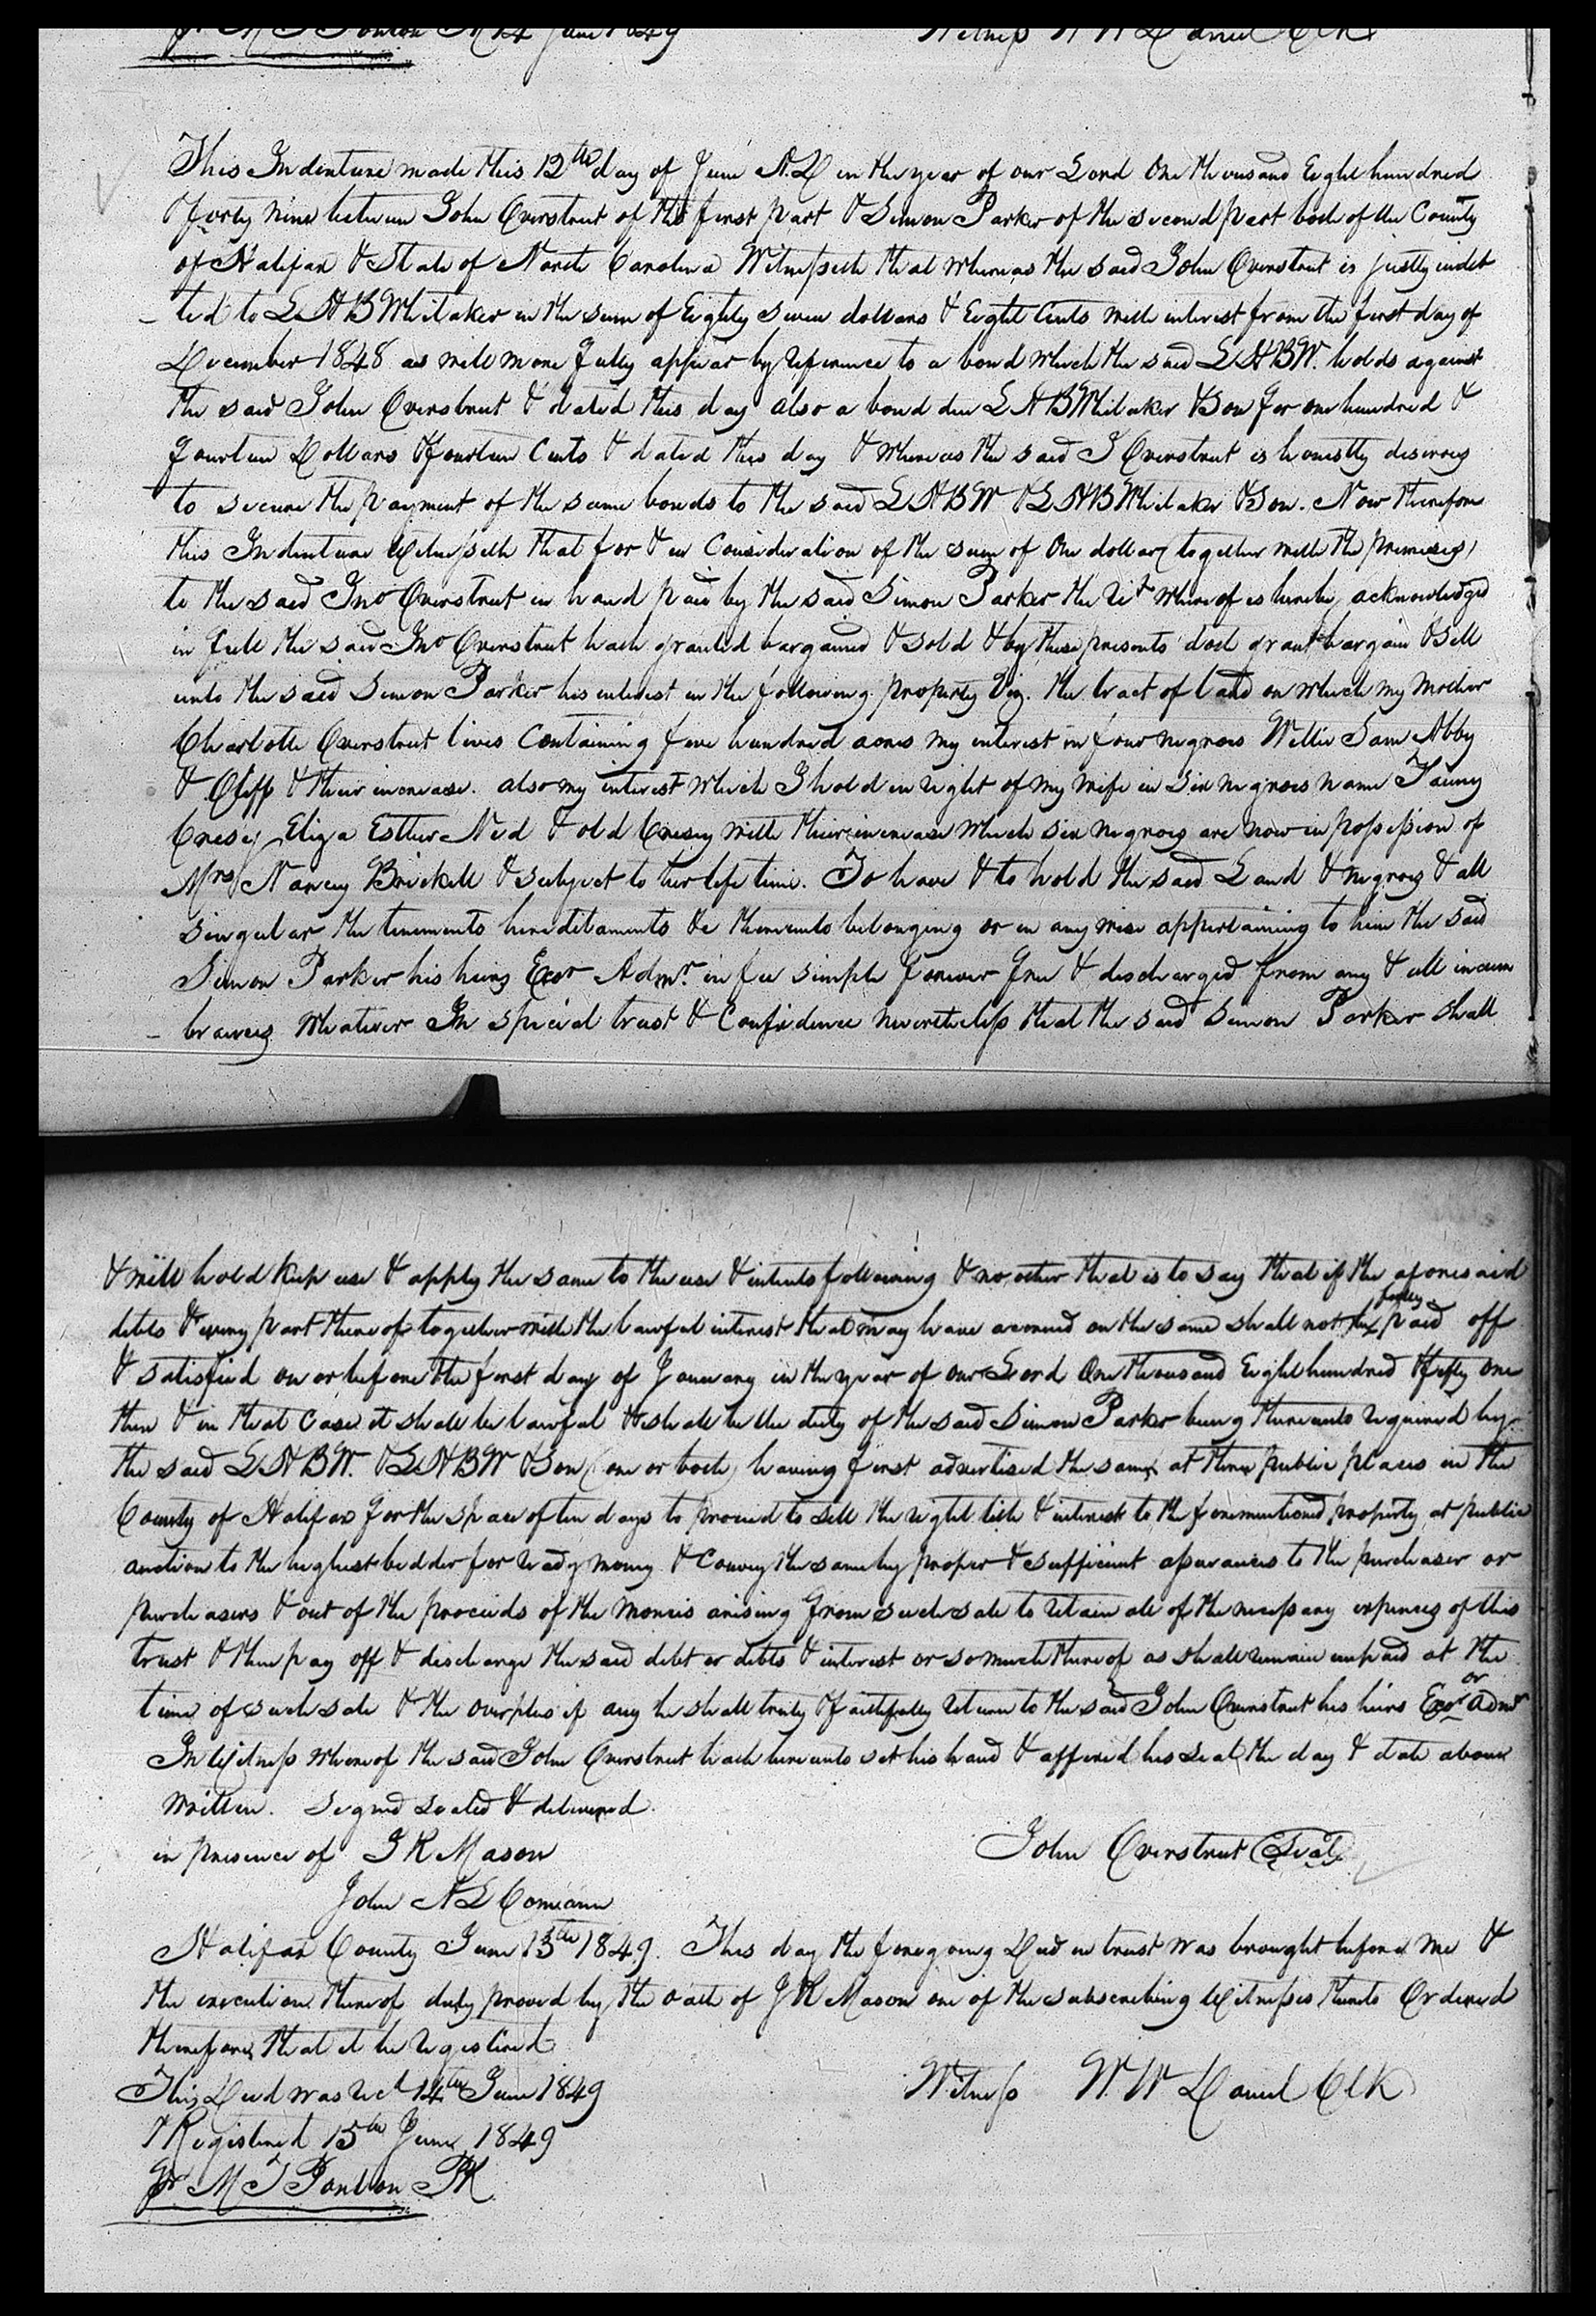 Jr M T Ponton P R 14 June 1849 Witness W W Daniel Clk
This Indenture made this 12th day of June A.D in the year of our Lord One thousand Eight hundred
& forty nine between John Overstreet of the first part & Simon Parker of the second part both of the County
of Halifax & State of North Carolina Witnesseth that whereas the said John Overstreet is justly indeb
-ted to L H B Whitaker in the sum of Eighty seven dollars & Eight Cents with interest from the first day of
December 1848 as will more fully appear by reference to a bond which the said L H B W. holds against
the said John Overstreet & dated this day also a bond due L H B Whitaker & Son for one hundred &
fourteen Dollars & fourteen Cents & dated this day & whereas the said J Overstreet is honestly desirous
to secure the payment of the same bonds to the said L H B W & L H B Whitaker & Son. Now therefore
this Indenture Witnesseth that for & in Consideration of the sum of One dollar (together with the premises)
to the said Jno Overstreet in hand paid by the said Simon Parker the rct whereof is hereby acknowledged
in full the said Jno Overstreet hath granted bargained & sold & by these presents doth grant bargain & Sell
unto the said Simon Parker his interest in the following property Viz. the tract of land on which my Mother
Charlotte Overstreet lives Containing five hundred acres my interest in four negroes Willie Sam Abby
& Cliff & their increase. also my interest which I hold in right of my wife in six negroes name
Cresey Eliza Esther Ned & old Cresey with their increase which six negroes are now in possession of
Mrs Nancy Brickell & subject to her life time. To have & to hold the said Land & negroes & all
singular the tenements hereditaments &c thereunto belonging or in any wise appertaining to him the said
Simon Parker his heirs Exor Admr. in fee simple forever free & discharged from any & all incum
-brances whatever In special trust & Confidence nevertheless that the said Simon Parker shall
& will hold keep use & apply the same to the use & intents following & no other that is to say that if the aforesaid
debts & every part thereof together with the lawful interest that may have accrued on the same shall not be fully paid off
& satisfied on or before the first day of January in the year of our Lord One thousand Eight hundred & fifty one
then & in that Case it shall be lawful & shall be the duty of the said Simon Parker being thereunto required by
the said L H B W. & L H B W & Son (one or both) having first advertised the same at three public places in the
County of Halifax for the space of ten days to proceed to sell the right title & interest to the forementioned property at public
auction to the highest bidder for ready money & Convey the same by proper & sufficient assurances to the purchaser or
purchasers & out of the proceeds of the monies arising from such sale to retain all of the necessary expences of this
trust & then pay off & discharge the said debt or debts & interest or so much thereof as shall remain unpaid at the
time of such sale & the overplus if any he shall truly & faithfully return to the said John Overstreet his heirs Exor or Admr
In Witness whereof the said John Overstreet hath hereunto set his hand & affixed his seal the day & date above
written. Signed sealed & delivered
in presence of J R Mason John Overstreet (Seal)
John A L
Halifax County June 13th 1849. This day the foregoing Deed in trust was brought before me &
the execution thereof duly proved by the oath of J R Mason one of the subscribing Witnesses thereto Ordered
therefore that it be registered
This Deed was recd 14th June 1849 Witness W. W Daniel Clk
& Registered 15th June 1849
Jr M T Ponton P R